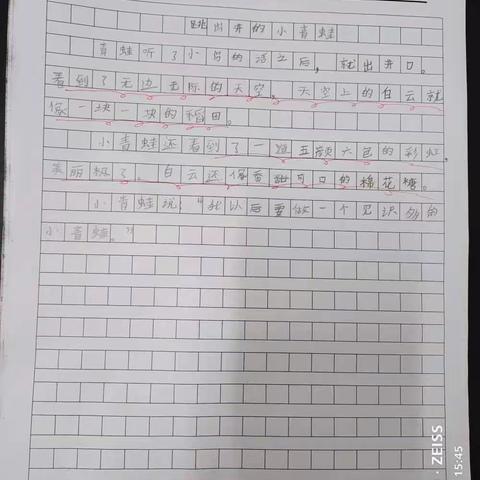 跳出井的小青蛙
青蛙听了小鸟的话之后，就出井口。
看到了无边无际的天空，天空上的白云就
像一块一块的稻田。
小青蛙还看到了一道五颜六色的彩虹，
美丽极了。白云还像香甜可口的棉花糖。
小青蛙说：“我以后要做一个见识多的
小青蛙。”
ZEISS
15:45